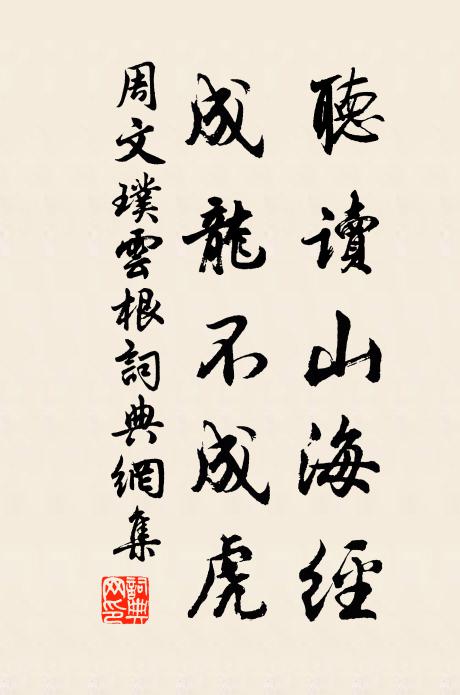 聽讀山海經
成龍不成虎
周文璞雲根詞典網集
詞典網印